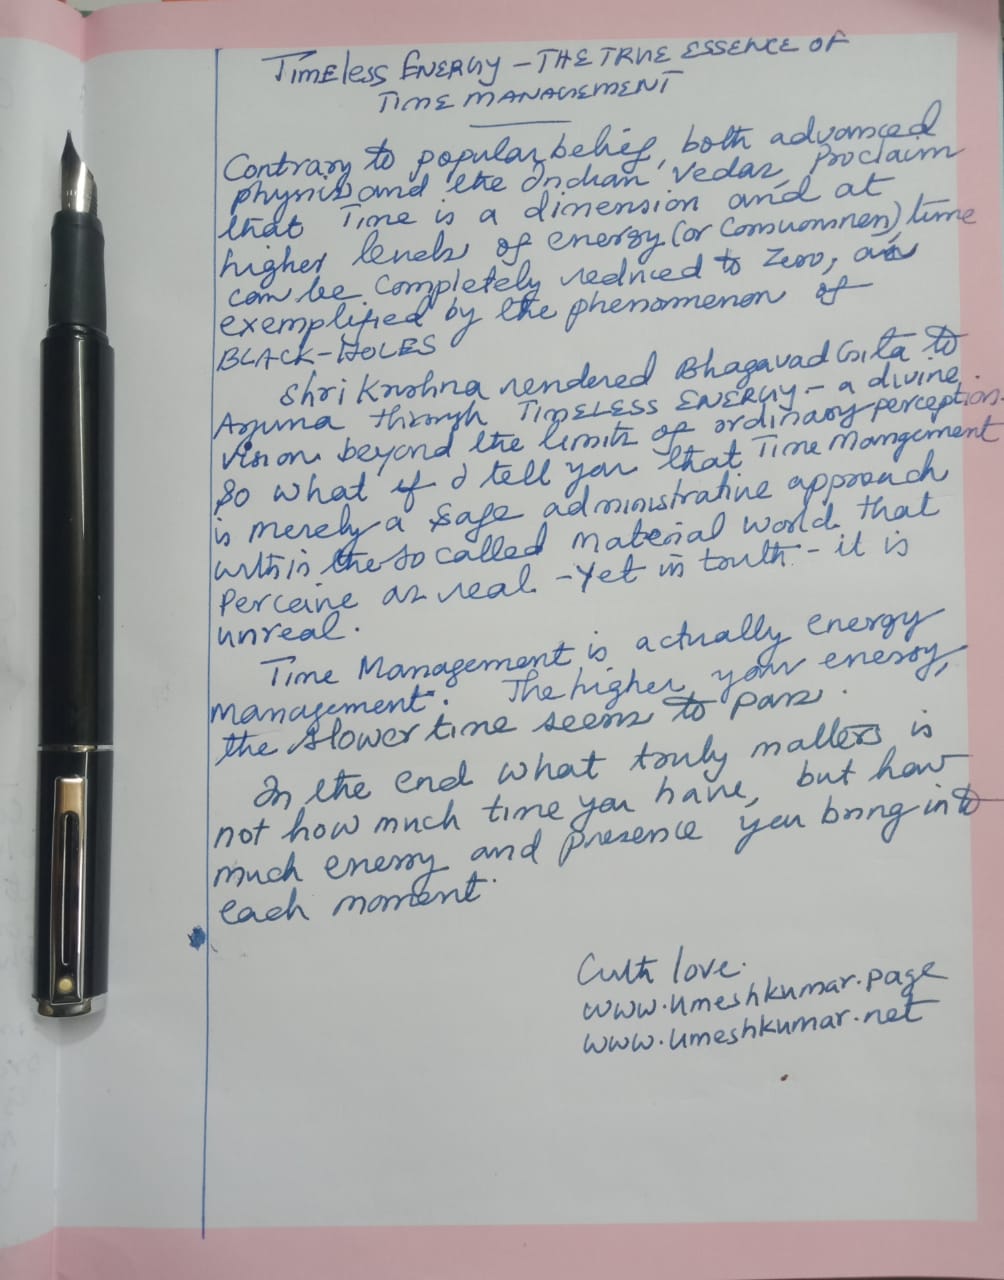 Timeless ENERGY - THE TRUE ESSENCE OF
TIME MANAGEMENT
Contrary to popular belief, both advanced
physics and the Indian Vedas, proclaim
that Time is a dimension and at
higher levels of energy (or Consciousness), time
can be completely reduced to Zero, as
exemplified by the phenomenon of
BLACK-HOLES
Shri Krishna rendered Bhagavad Gita to
Arjuna through TIMELESS ENERGY - a divine
vision beyond the limits of ordinary perception.
So what if I tell you that Time Mangement
is merely a safe administrative approach
within the so called material world that
perceive as real - Yet in truth - it is
unreal.
Time Management is actually energy
management. The higher your energy,
the slower time seems to pass.
In the end what truly matters is
not how much time you have, but how
much energy and presence you bring into
each moment.
With love.
www.umeshkumar.page
www.umeshkumar.net